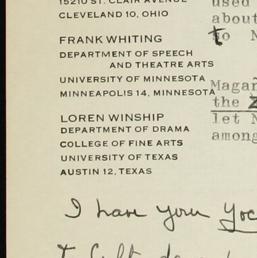 15210 ST. CLAIR AVENUE
CLEVELAND 10, OHIO
FRANK WHITING
DEPARTMENT OF SPEECH
AND THEATRE ARTS
UNIVERSITY OF MINNESOTA
MINNEAPOLIS 14, MINNESOTA
LOREN WINSHIP
DEPARTMENT OF DRAMA
COLLEGE OF FINE ARTS
UNIVERSITY OF TEXAS
AUSTIN 12, TEXAS
used
about
to N
Magar
the
let N
among
I have your